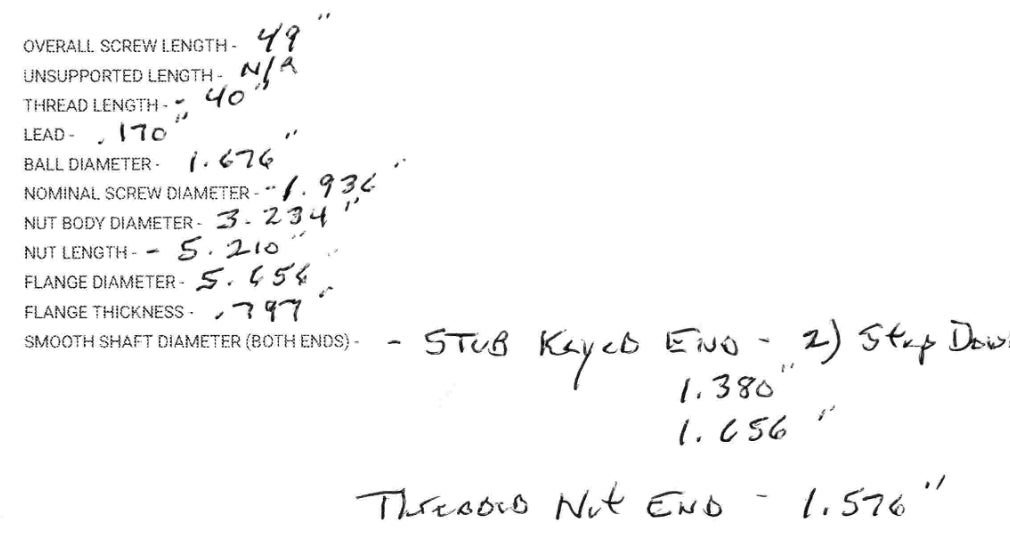 OVERALL SCREW LENGTH - 49"
UNSUPPORTED LENGTH - N/A
THREAD LENGTH - - 40"
LEAD - .170"
BALL DIAMETER - 1.676"
NOMINAL SCREW DIAMETER - - 1.936"
NUT BODY DIAMETER - 3.234"
NUT LENGTH - - 5.210"
FLANGE DIAMETER - 5.656"
FLANGE THICKNESS - .797"
SMOOTH SHAFT DIAMETER (BOTH ENDS) - - STUB KEYED END - 2) Step Down
1.380"
1.656"
THREADED Nut END - 1.576"